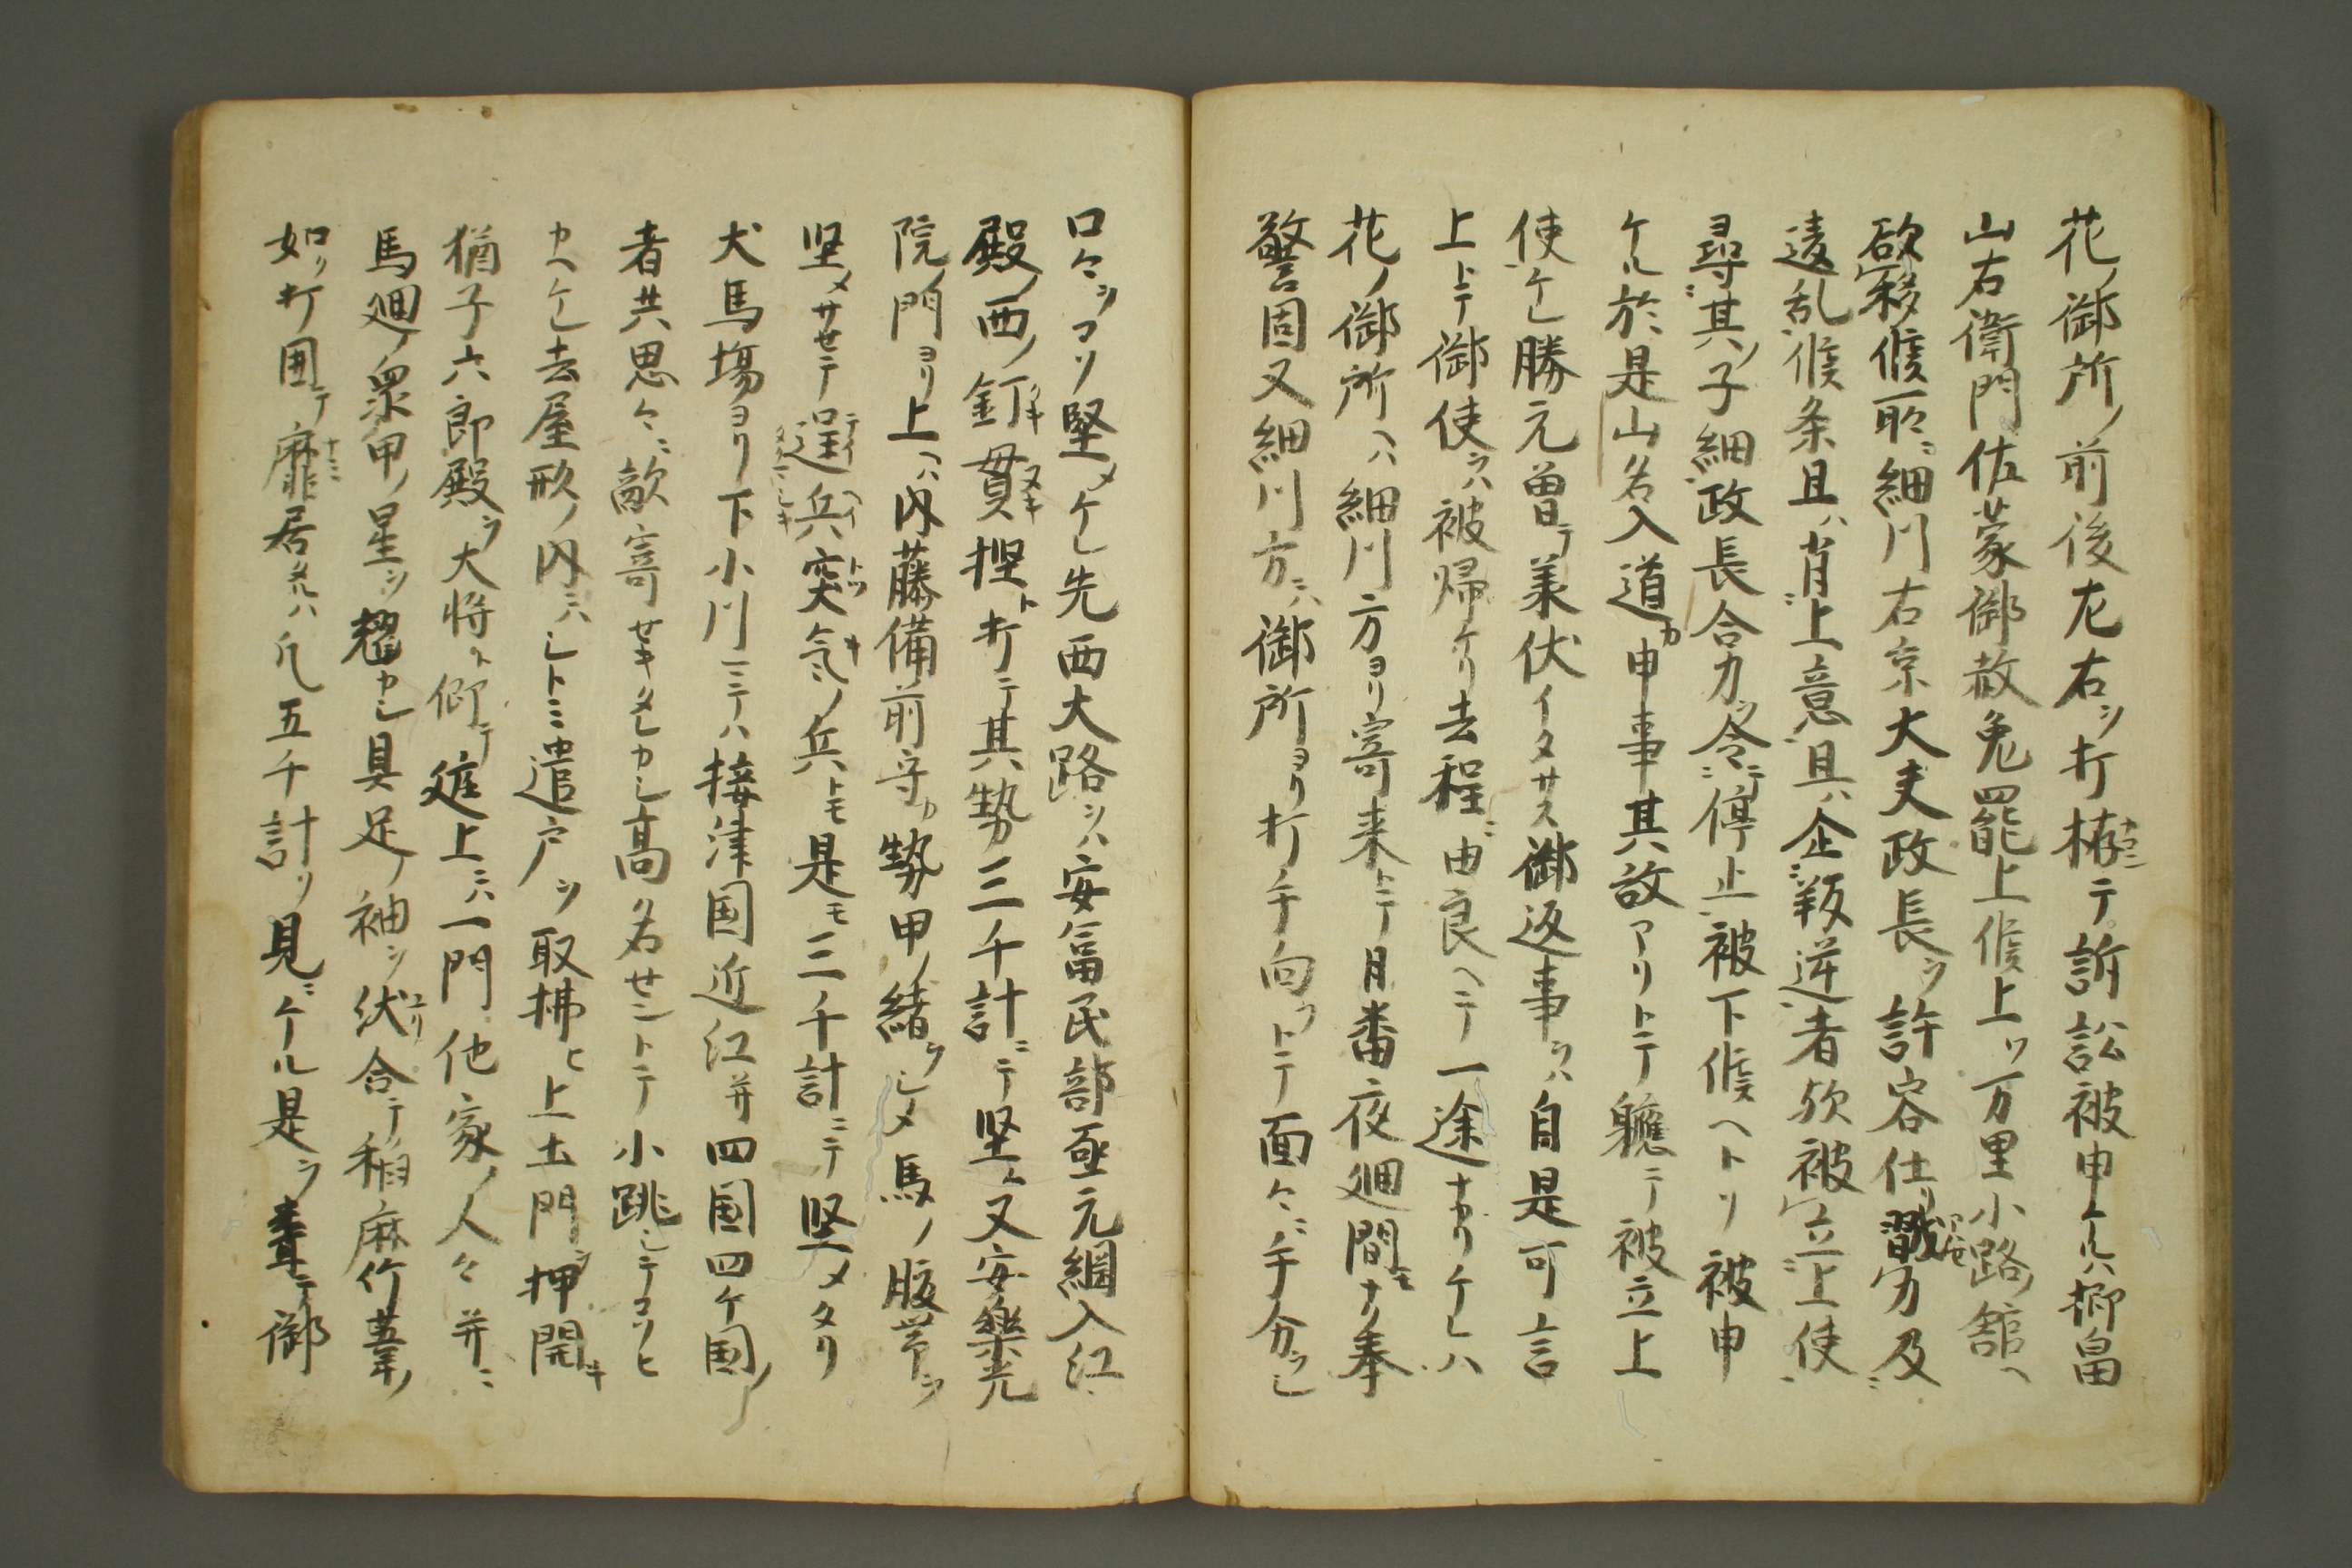 花ノ御所ノ前後左右ヲ打栫テ訴訟被申ケルハ抑畠
山右衛門佐蒙御赦免罷上候上ツ万里小路舘ヘ
欲移候所ニ細川右京大夫政長ヲ許容仕リ及
違乱候条且ハ背上意且ハ企叛逆者欤被立上使
尋其ノ子細政長合力ヲ令停止被下候ヘトソ被申
ケル於是山名入道カ申事其故アリトテ軈テ被立上
使ケレ勝元曽テ義伏イタサス御返事ヲハ自是可言
上トテ御使ヲハ被帰ケリ去程ニ由良ヘテ一途ナカリケレハ
花ノ御所ヘハ細川方ヨリ寄来トテ月番夜廻間モナク奉
警固又細川方ニハ御所ヨリ打手向フトテ面々ニ手分ヲシ
口々ヲコソ堅メケレ先西大路ヲハ安冨民部亟元綱入江
殿ノ西ノ釘貫捏ト打テ其勢三千計ニテ堅ム又安樂光
院ノ門ヨリ上ヘハ内藤備前守カ勢甲ノ緒ヲシメ馬ノ腹帯ヲ
堅メサセテ逞兵突気ノ兵トモ是モ三千計ニテ堅メタリ
犬馬場ヨリ下小川ニテハ接津国近江并四国四ケ国ノ
者共思々ニ敵寄セキタレカシ高名セントテ小跳シテコソヒ
カヘケレ去屋形ノ内ニハシトミ遣戸ヲ取拂ヒ上土門押開キ
猶子六郎殿ヲ大将ト仰テ庭上ニハ一門他家ノ人々并ニ
馬廻ノ衆甲ノ星ヲ耀カシ具足ノ袖ヲ伏合テ稲麻竹葦ノ
如ク打囲テ靡居タルハ凡五千計ソ見ニケル是ヲ聋テ御